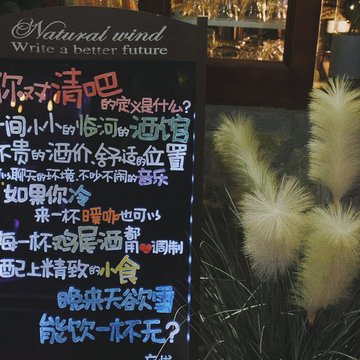 Natural wind
Write a better future
你对清吧
的定义是什么?
一间小小的临河的酒馆
不贵的酒价.舒适的位置
以聊天的环境.不吵不闹的音乐
如果你冷
来一杯暖咖也可以
每一杯鸡尾酒都用❤调制
配上精致的小食
晚来天欲雪
能饮一杯无?